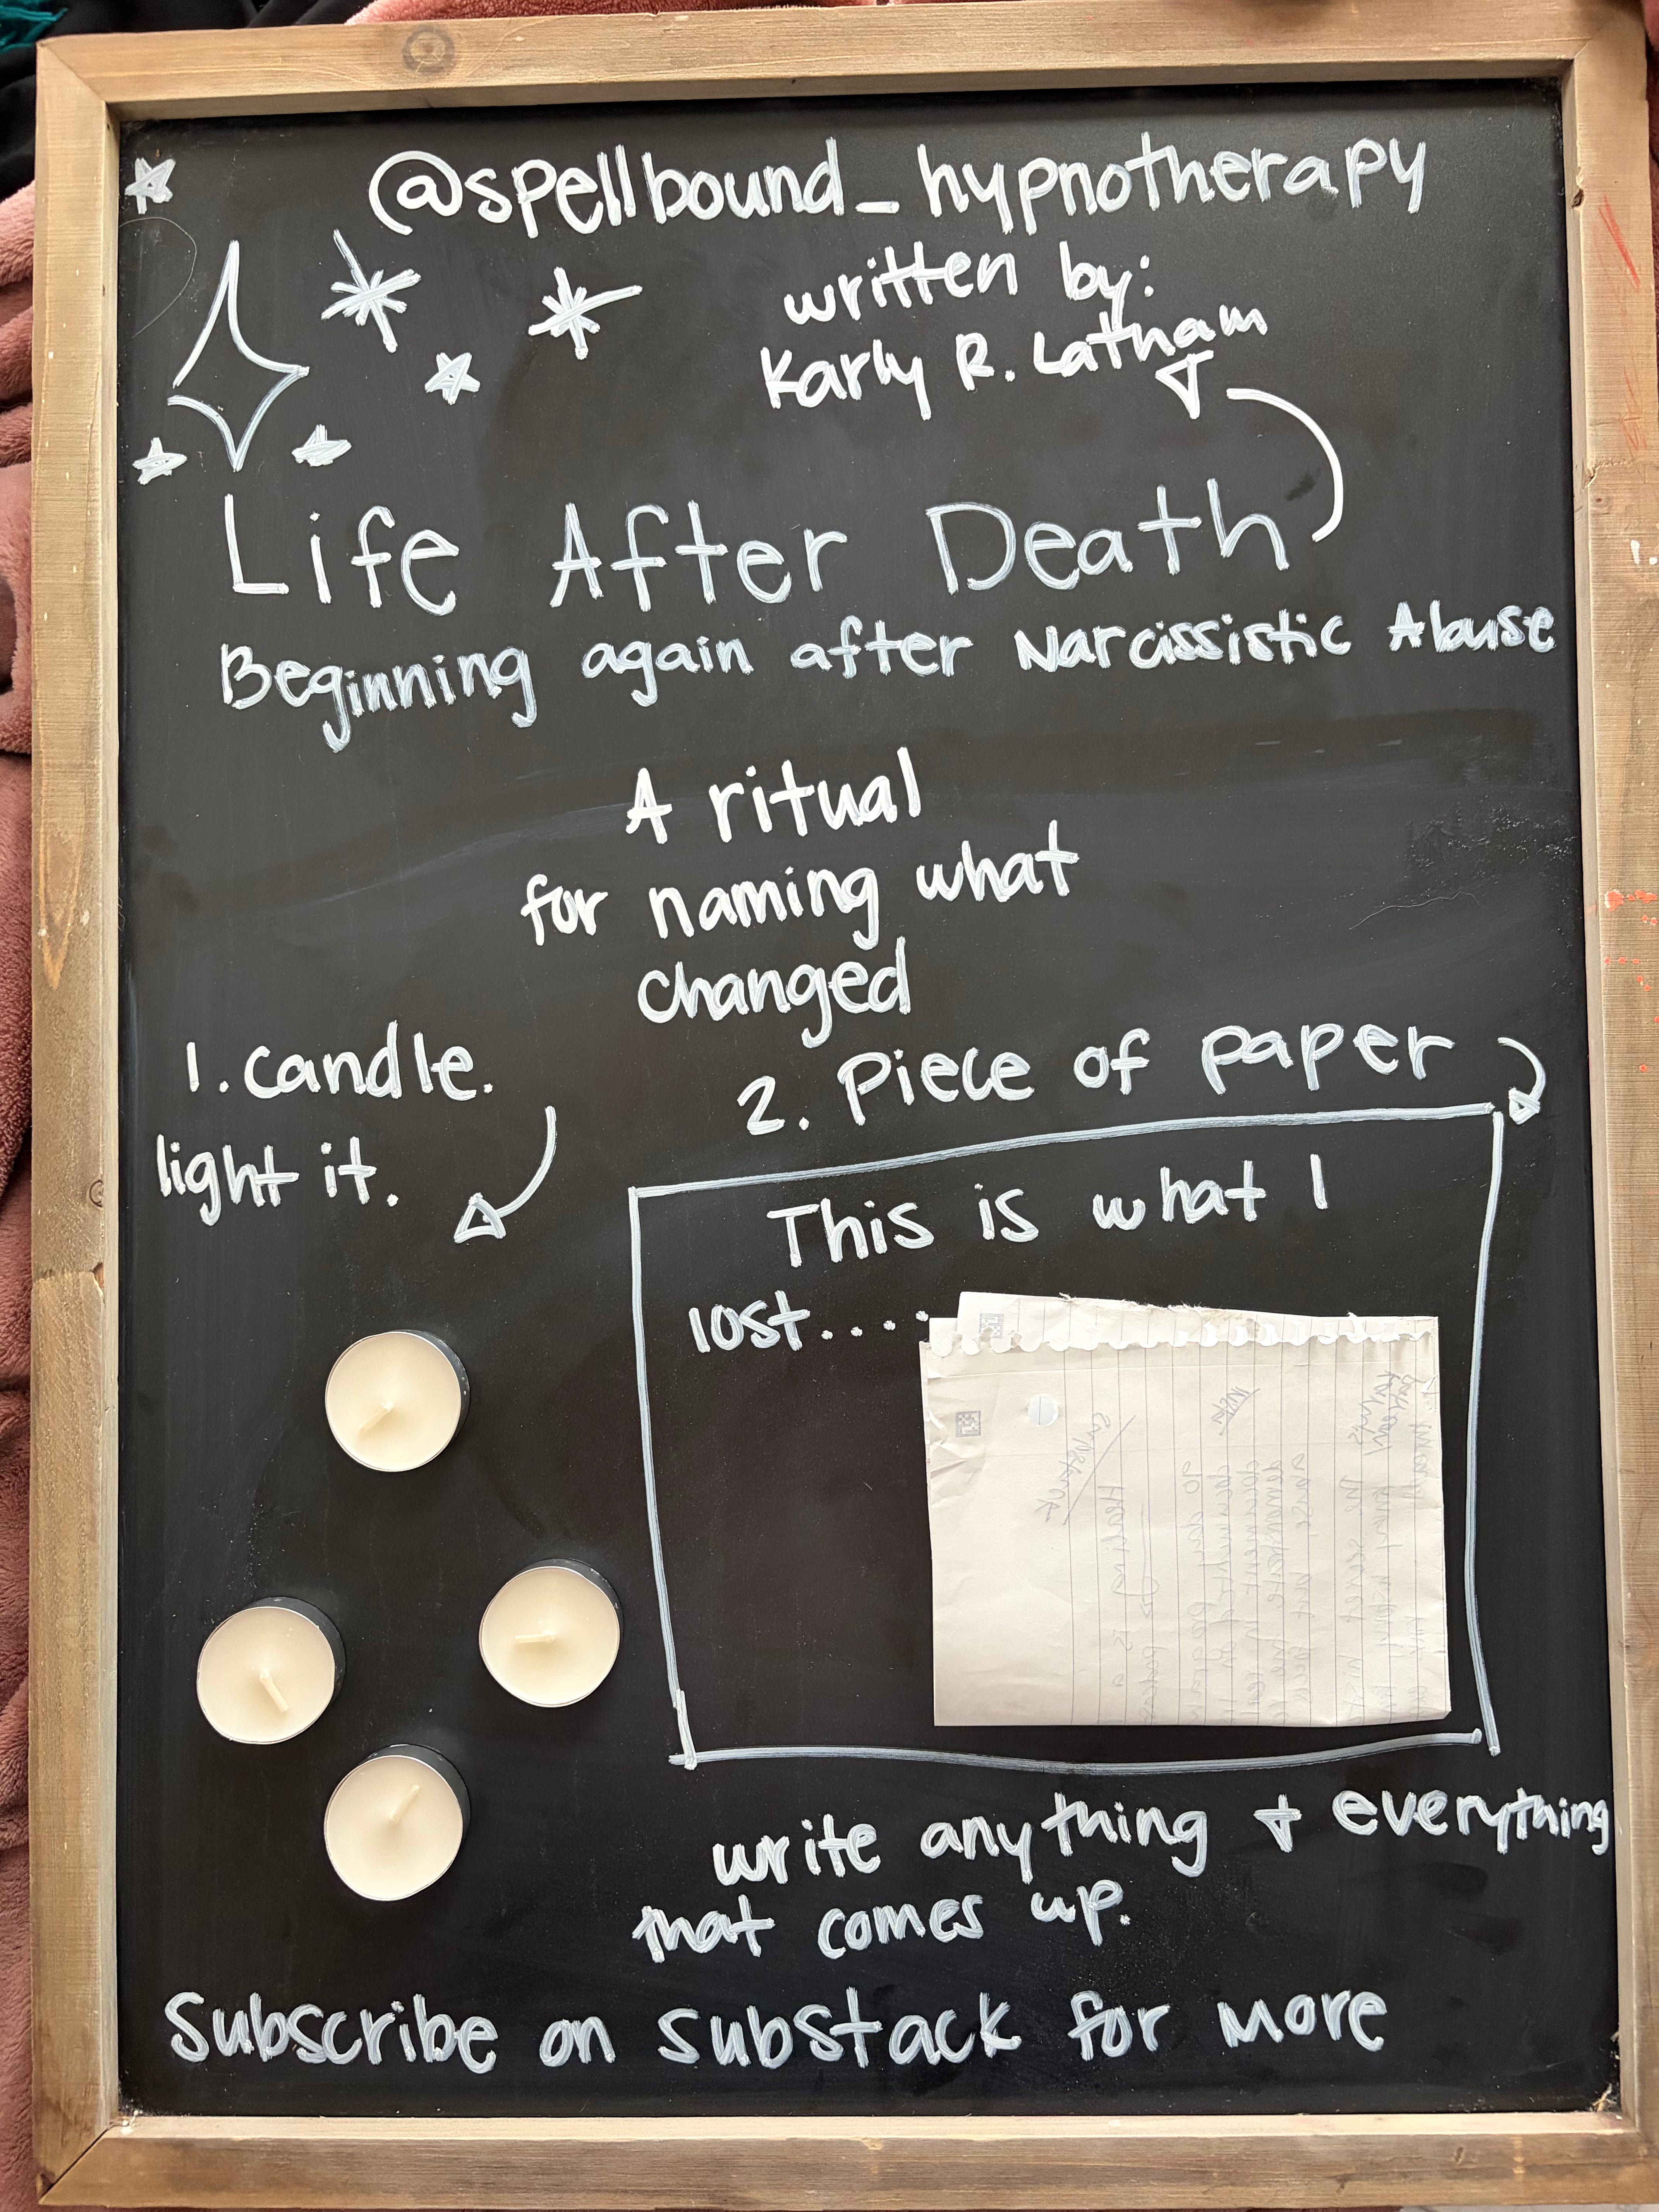 @spellbound_hypnotherapy
written by:
Karly R. Latham
Life After Death
Beginning again after Narcissistic Abuse
A ritual
for naming what
changed
1. candle.
light it.
2. Piece of paper
This is what I
lost....
write anything + everything
that comes up.
Subscribe on substack for more